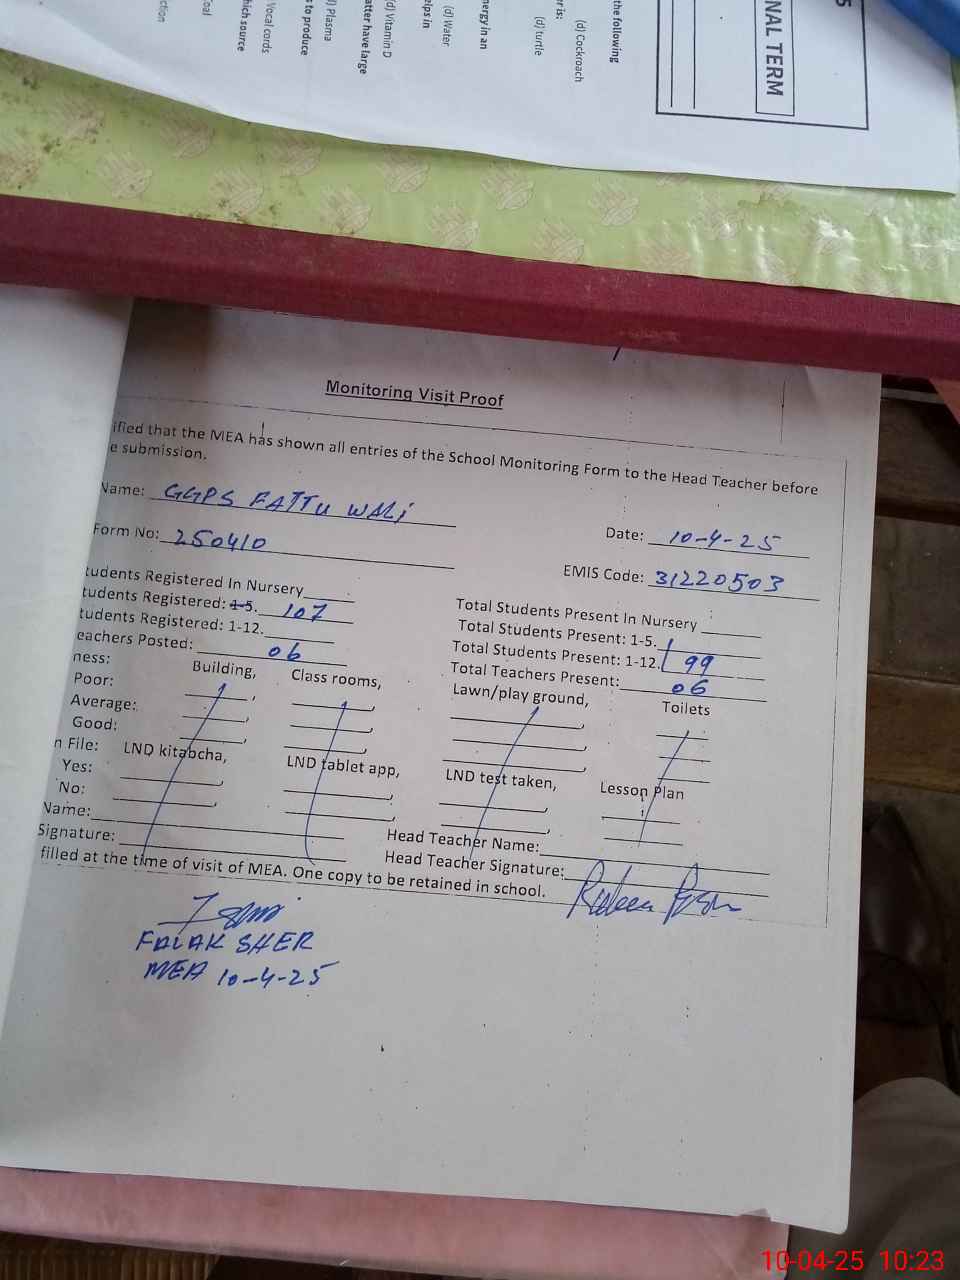 the following
(d) Cockroach
er is:
(d) turtle
nergy in an
(d) Water
elps in
(d) Vitamin D
atter have large
Plasma
s to produce
Vocal cords
hich source
Coal
ction
NAL TERM
5
Monitoring Visit Proof
ified that the MEA has shown all entries of the School Monitoring Form to the Head Teacher before
e submission.
Name: GGPS FATTU WALI
Date: 10-4-25
Form No: 250410
EMIS Code: 31220503
tudents Registered In Nursery
Total Students Present In Nursery
tudents Registered: 1-5. 107
Total Students Present: 1-5.
tudents Registered: 1-12.
Total Students Present: 1-12. 99
eachers Posted: 06
Total Teachers Present: 06
ness: Building, Class rooms, Lawn/play ground, Toilets
Poor:
Average:
Good:
n File: LND kitabcha, LND tablet app, LND test taken, Lesson Plan
Yes:
No:
Name:
Head Teacher Name:
Signature:
Head Teacher Signature:
filled at the time of visit of MEA. One copy to be retained in school.
FALAK SHER
MEA 10-4-25
10-04-25 10:23